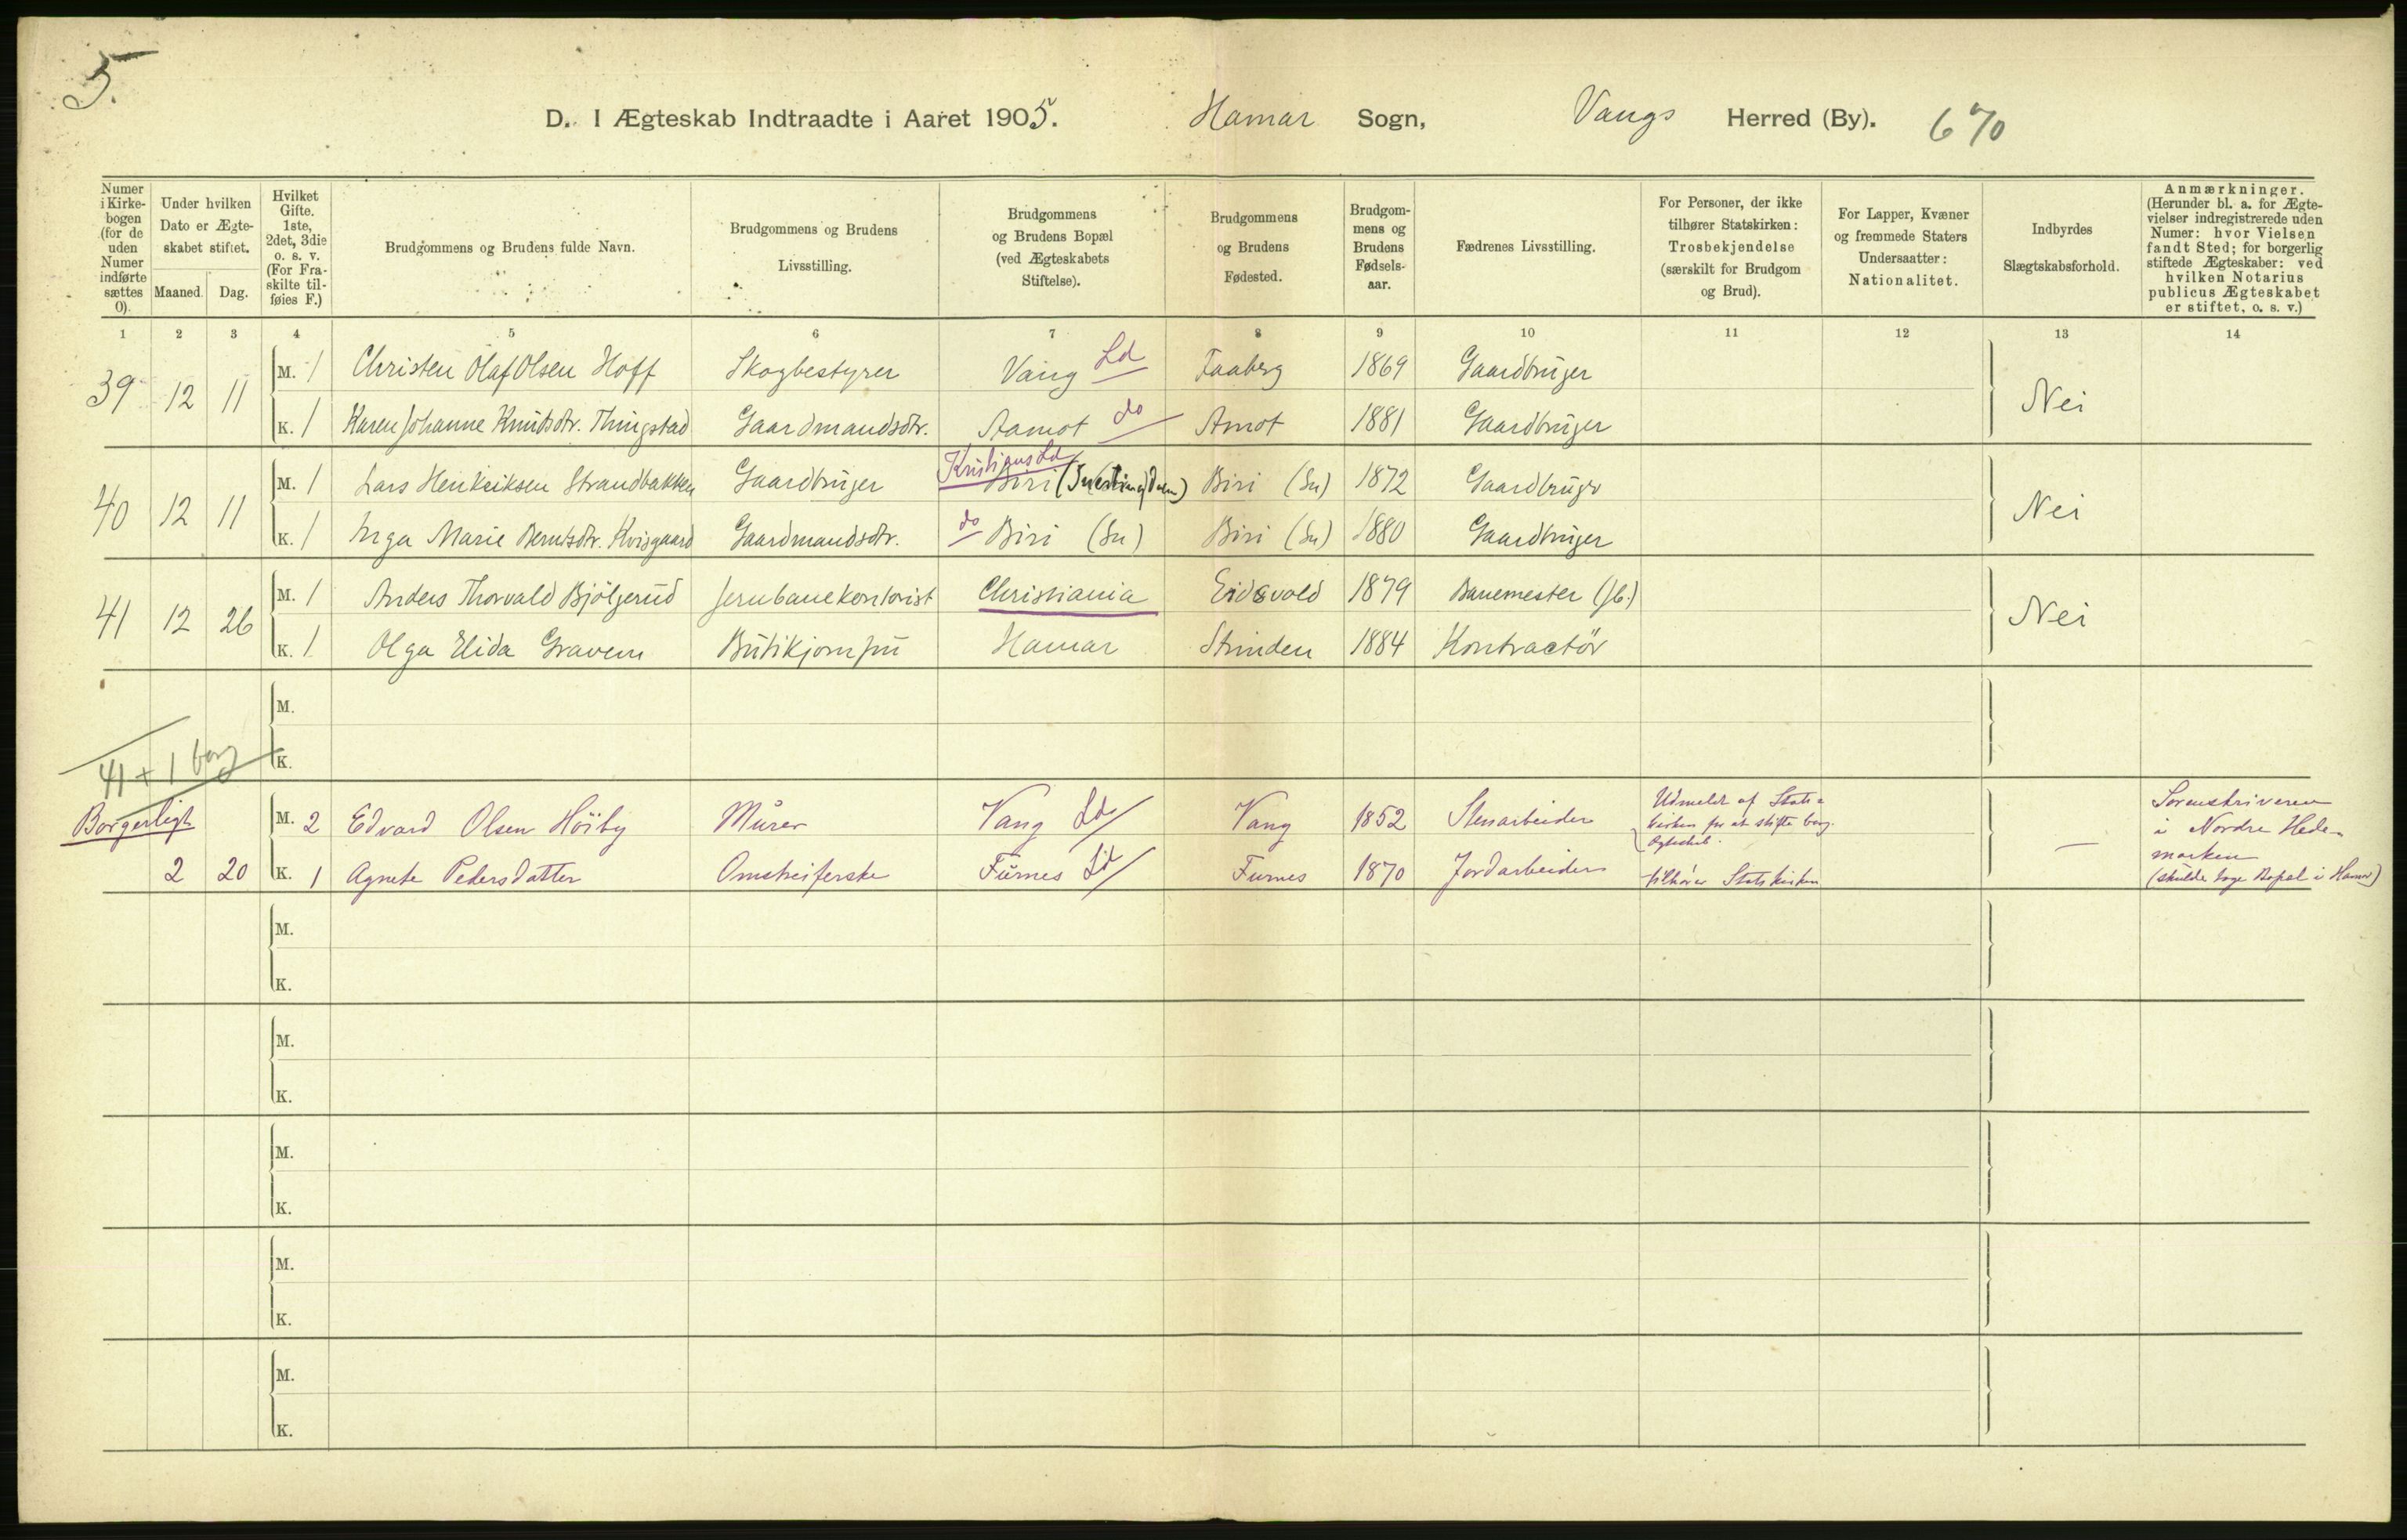 5.
D. I Ægteskab Indtraadte i Aaret 1905. Hamar Sogn, Vangs Herred (By). 670
Numer i Kirkebogen (for de uden Numer indførte sættes 0).
Under hvilken Dato er Ægteskabet stiftet.
Maaned. Dag.
Hvilket Gifte. 1ste, 2det, 3die o. s. v. (For Fraskilte tilføies F.)
Brudgommens og Brudens fulde Navn.
Brudgommens og Brudens Livsstilling.
Brudgommens og Brudens Bopæl (ved Ægteskabets Stiftelse).
Brudgommens og Brudens Fødested.
Brudgommens og Brudens Fødselsaar.
Fædrenes Livsstilling.
For Personer, der ikke tilhører Statskirken: Trosbekjendelse (særskilt for Brudgom og Brud).
For Lapper, Kvæner og fremmede Staters Undersaatter: Nationalitet.
Indbyrdes Slægtskabsforhold.
Anmærkninger. (Herunder bl. a. for Ægtevielser indregistrerede uden Numer: hvor Vielsen fandt Sted; for borgerlig stiftede Ægteskaber: ved hvilken Notarius publicus Ægteskabet er stiftet, o. s. v.)
1 2 3 4 5 6 7 8 9 10 11 12 13 14
39 12 11 M. 1 Christen Olaf Olsen Hoff Skogbestyrer Vang Ld Faaberg 1869 Gaardbruger Nei
K. 1 Karen Johanne Knudsdtr. Thingstad Gaardmandsdtr. Aamot do Amot 1881 Gaardbruger
40 12 11 M. 1 Lars Henriksen Strandbakken Gaardbruger Kristians Ld Biri (Snertingdalen) Biri (Sn) 1872 Gaardbruger Nei
K. 1 Inga Marie Berntsdtr. Kvisgaard Gaardmandsdtr. do Biri (Sn) Biri (Sn) 1880 Gaardbruger
41 12 26 M. 1 Anders Thorvald Bjölgerud Jernbanekontorist Christiania Eidsvold 1879 Banemester (Jb.) Nei
K. 1 Olga Elida Gravem Butikjomfru Hamar Strinden 1884 Kontractör
M.
K.
41 + 1 borg
Borgerligt M. 2 Edvard Olsen Höiby Murer Vang Ld Vang 1852 Stenarbeider Udmeldt af Statskirken for at stifte borg. Ægteskab. — Sorenskriveren i Nordre Hedemarken
2 20 K. 1 Agnete Pedersdatter Omstreiferske Furnes Ld Furnes 1870 Jordarbeider tilhører Statskirken (skulde tage Bopæl i Hamar)
M.
K.
M.
K.
M.
K.
M.
K.
M.
K.